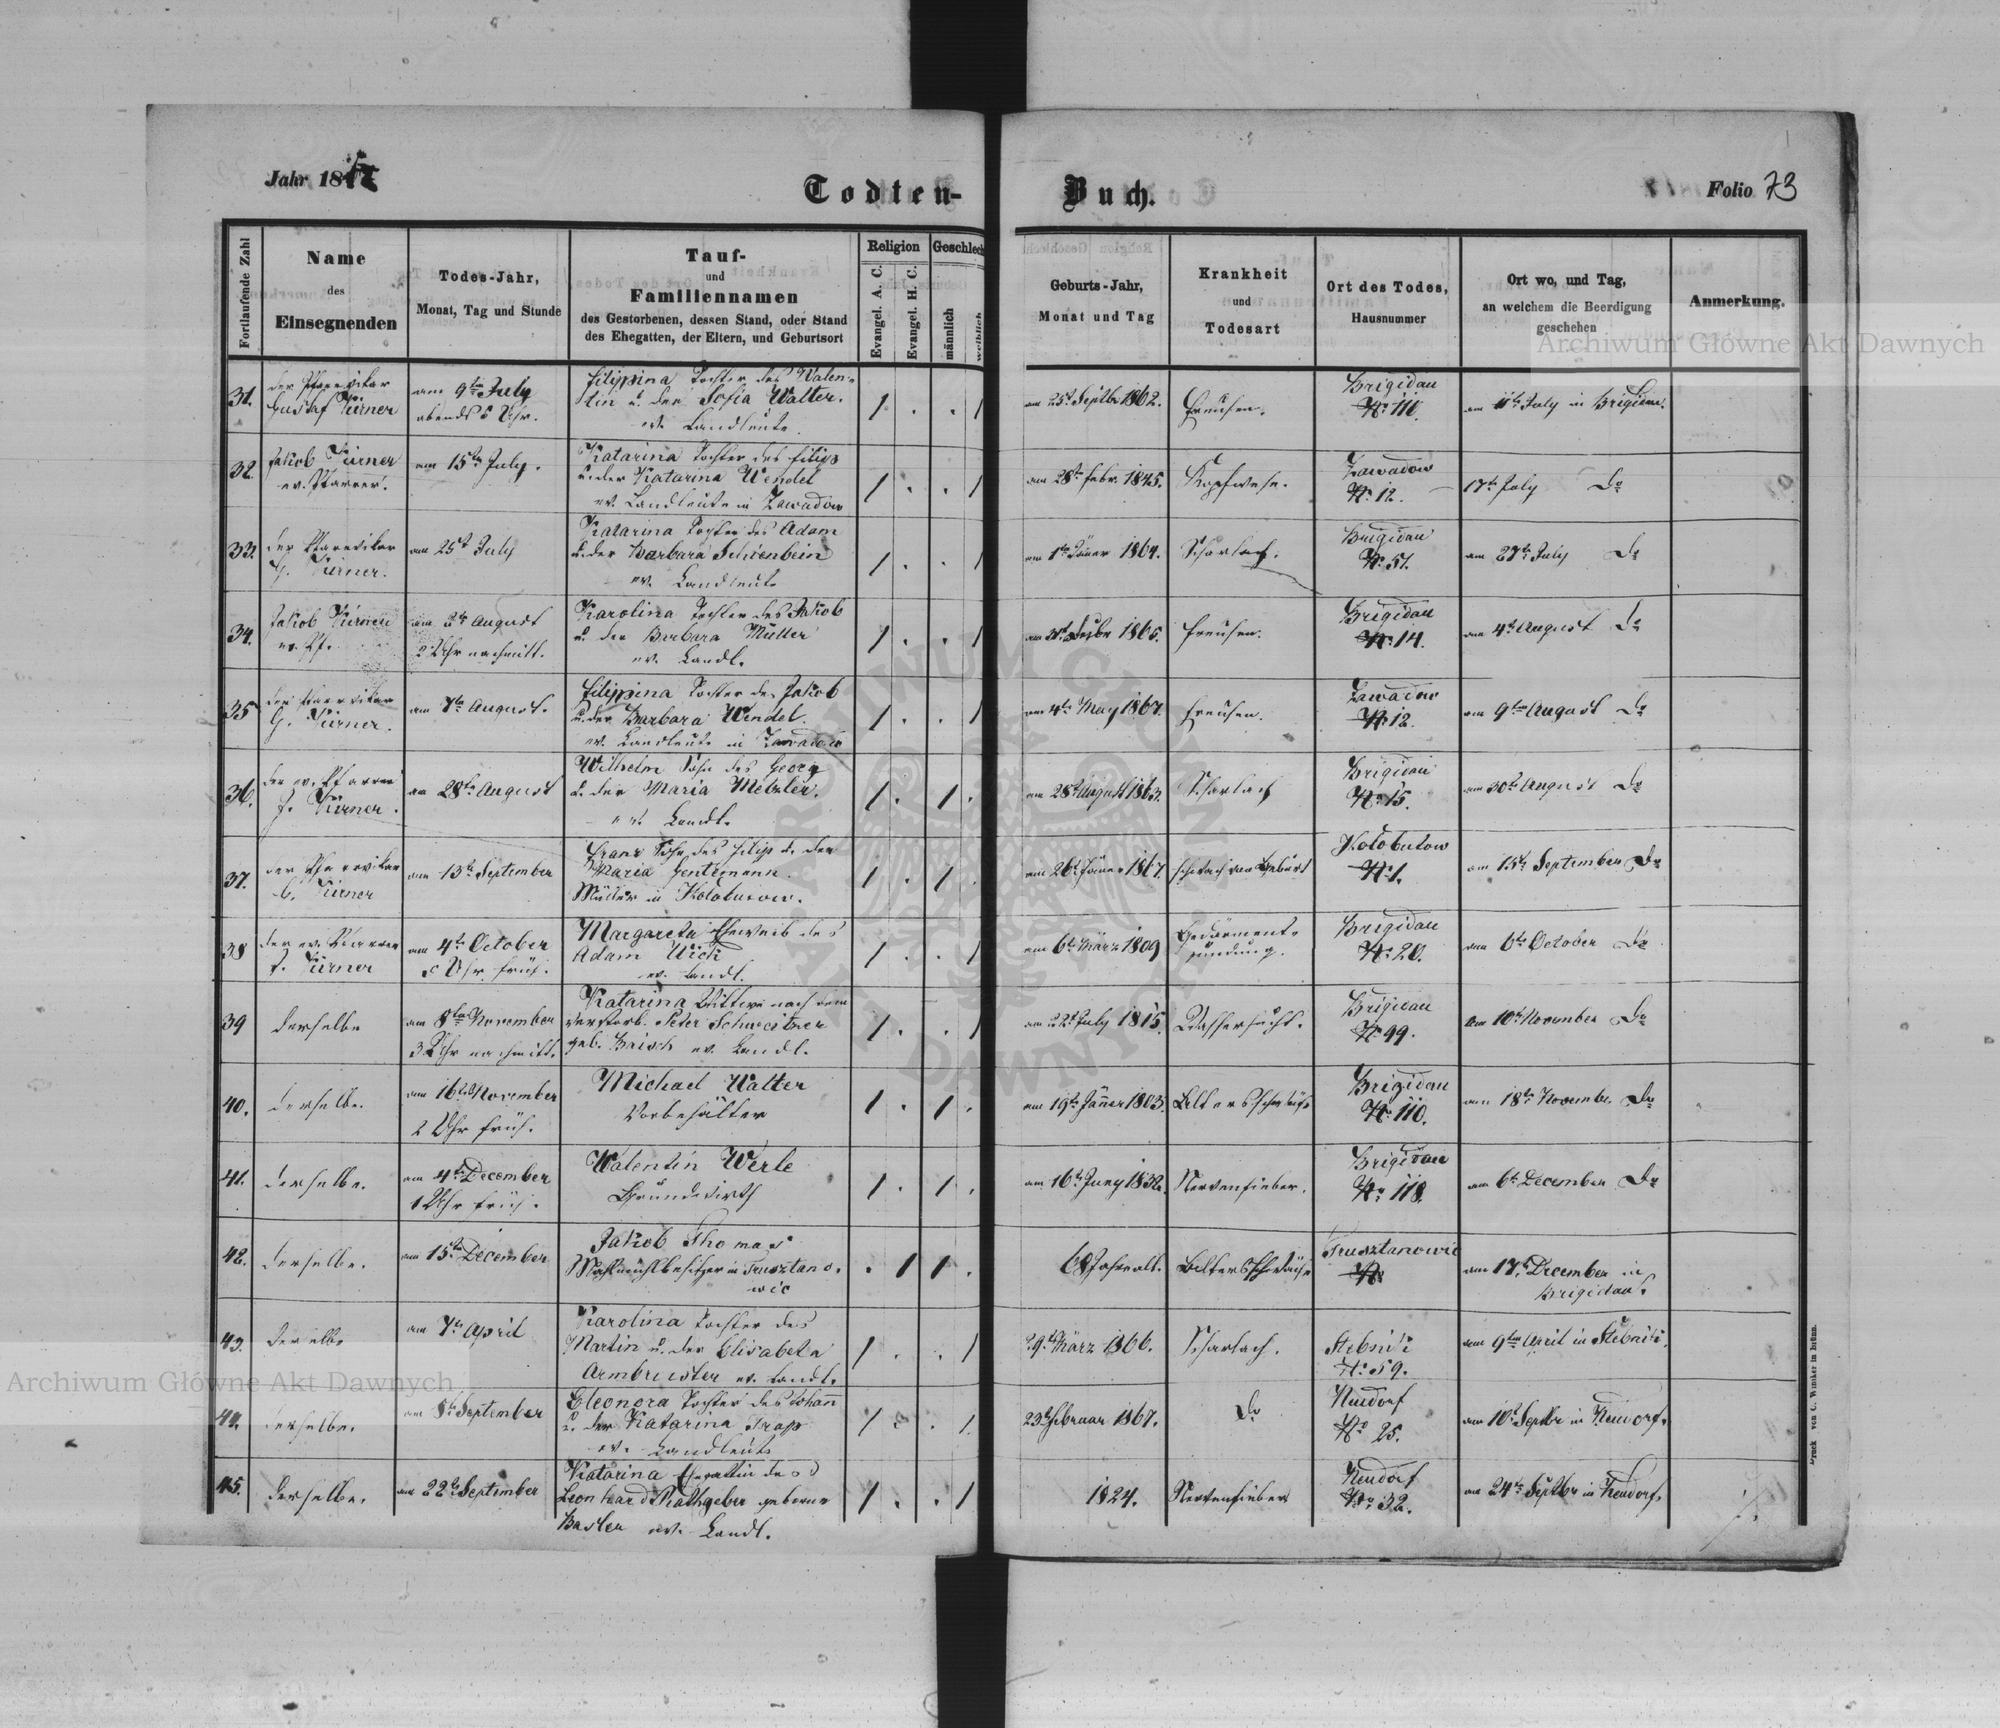 Jahr 18
Todten-
Buch.
Folio 73
Fortlaufende Zahl
Name
des
Einsegnenden
Todes-Jahr,
Monat, Tag und Stunde
Tauf-
und
Familiennamen
des Gestorbenen, dessen Stand, oder Stand
des Ehegatten, der Eltern, und Geburtsort
Religion
Evangel. A. C.
Evangel. H. C.
Geschlech
männlich
weiblich
Geburts-Jahr,
Monat und Tag
Krankheit
und
Todesart
Ort des Todes,
Hausnummer
Ort wo, und Tag,
an welchem die Beerdigung
geschehen
Anmerkung.
Archiwum Główne Akt Dawnych
31.
der Pfarrvikar
Gustaf Türner
am 9ten July
abends 5 Uhr.
Filippina Tochter des Valen-
tin u. der Sofia Walter.
ev. Landleute
am 25t Septbr 1862.
Freusen.
Brigidau
No 111.
am 11t July in Brigidau.
32.
Jakob Türner
ev. Pfarrer.
am 15ten July.
Katarina Tochter des Filip
u. der Katarina Wendel
ev. Landleute in Zawadow
am 28t Febr. 1845.
Kopfwese.
Zawadow
No 12.
17ten July Do
33.
der Pfarrvikar
G. Türner.
am 25t July
Katarina Tochter des Adam
u. der Barbara Schienbein
ev. Landleute
am 1ten Jäner 1864.
Scharlach.
Brigidau
No 51.
am 27ten July Do
34.
Jakob Türner
ev. Pf.
am 2ten August
2 Uhr nachmitt.
Karolina Tochter des Jakob
u. der Barbara Müller
ev. Landl.
1865.
Freusen.
Brigidau
No 14.
am 4t August Do
35
der Pfarrvikar
G. Türner.
am 7ten August.
Filippina Tochter des Jakob
u. der Barbara Wendel.
ev. Landleute in Zawadow
am 4ten May 1867.
Freusen.
Zawadow
No 12.
am 9ten August Do
36.
der ev. Pfarrer
J. Türner.
am 28ten August
Wilhelm Sohn des Georg
u. der Maria Metzler.
ev. Landl.
am 28t August 1863.
Scharlach
Brigidau
No 15.
am 30t August Do
37.
der Pfarrvikar
G. Türner
am 13ten September
Franz Sohn des Filip u. der
Maria Gentzmann.
Müller in Kolobutow.
am 26t Jäner 1867
schwach von Geburt
Kolobutow
No 1.
am 15t September Do
38
der ev. Pfarrer
J. Türner
am 4ten October
5 Uhr früh.
Margareta Eheweib des
Adam Wick
ev. Landl.
am 6ten März 1809
Gedärment-
zündung.
Brigidau
No 20.
am 6ten October Do
39
derselbe
am 8ten November
3 Uhr nachmitt.
Katarina Wittwe nach dem
verstorb. Peter Schweitzer
geb. Baisch ev. Landl.
am 22t July 1815.
Wassersucht.
Brigidau
No 99.
am 10t November Do
40.
derselbe.
am 16ten November
2 Uhr früh.
Michael Walter
Vorbehälter
am 19ten Jäner 1803.
Altersschwäche
Brigidau
No 110.
am 18ten Novembr. Do
41.
derselbe.
am 4ten December
1 Uhr früh.
Valentin Werle
Grundwirth
am 16ten Juny 1832.
Nervenfieber.
Brigidau
No 118.
am 6t December Do
42.
derselbe.
am 15ten December
Jakob Thomas
Mahlmühlbesitzer in Trusztano-
wic
68 Jahre alt.
Altersschwäche
Trusztanowic
No
am 17t December in
Brigidau.
43.
derselbe
am 7ten April
Karolina Tochter des
Martin u. der Elisabeta
Armbruster ev. Landl.
29t März 1866.
Scharlach.
Stebnik
No 59.
am 9ten April in Stebnik.
44.
derselbe.
am 8ten September
Eleonora Tochter des Johann
u. der Katarina Trap
ev. Landleute
23t Februar 1867.
Do
Neudorf
No 25.
am 10t Septbr in Neudorf.
45.
derselbe.
am 22ten September
Katarina Ehegattin des
Leonhard Rathgeber geborne
Basler ev. Landl.
1824.
Nervenfieber
Neudorf
No 32.
am 24ten Septbr in Neudorf.
Druck von C. Winiker in Brünn.
Archiwum Główne Akt Dawnych
ARCHIWUM GŁÓWNE AKT DAWNYCH